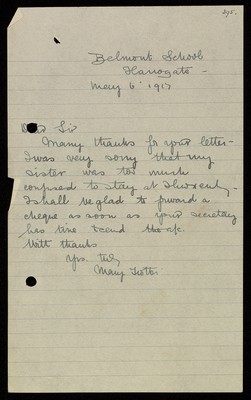 295.
Belmont School
Harrogate -
May 6. 1917
Dear Sir
Many thanks for your letter -
I was very sorry that my
sister was too much
confused to stay at
I shall be glad to forward a
cheque as soon as your secretary
has time to send the a/c.
With thanks
Yrs. truly
Mary